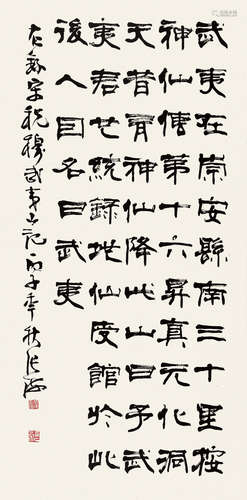 武夷在崇安縣南三十里按
神仙傳第十六昇真元化洞
天昔有神仙降此山曰予武
夷君世統錄地仙受館於此
後人因名曰武夷
右錄宋祝穆武夷山記丙子年秋張海